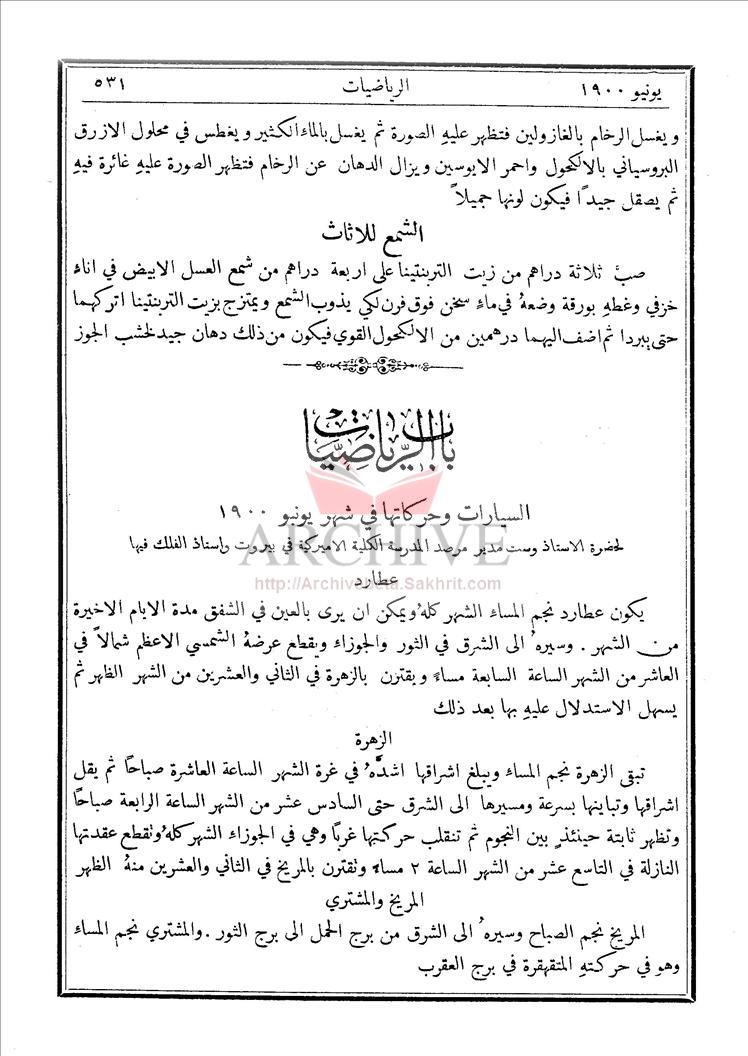 يونيو ١٩٠٠
الرياضيات
٥٣١
ويغسل الرخام بالغازولين فتظهر عليهِ الصورة ثم يغسل بالماء الكثير ويغطس في محلول الازرق
البروسياني بالالكحول واحمر الايوسين ويزال الدهان عن الرخام فتظهر الصورة عليهِ غائرة فيهِ
ثم يصقل جيدًا فيكون لونها جميلاً
الشمع للاثاث
صبَّ ثلاثة دراهم من زيت التربنتينا على اربعة دراهم من شمع العسل الابيض في اناءٍ
خزفي وغطهِ بورقة وضعهُ في ماءٍ سخن فوق فرن لكي يذوب الشمع ويمتزج بزيت التربنتينا اتركهما
حتى يبردا ثم اضف اليهما درهمين من الالكحول القوي فيكون من ذلك دهان جيد لخشب الجوز
باب الرياضيات
السيارات وحركاتها في شهر يونيو ١٩٠٠
لحضرة الاستاذ وست مدير مرصد المدرسة الكلية الاميركية في بيروت واستاذ الفلك فيها
ARCHIVE
http://Archivebeta.Sakhrit.com
عطارد
يكون عطارد نجم المساء الشهر كلهُ ويمكن ان يرى بالعين في الشفق مدة الايام الاخيرة
من الشهر . وسيرهُ الى الشرق في الثور والجوزاء ويقطع عرضهُ الشمسي الاعظم شمالاً في
العاشر من الشهر الساعة السابعة مساءً ويقترن بالزهرة في الثاني والعشرين من الشهر الظهر ثم
يسهل الاستدلال عليهِ بها بعد ذلك
الزهرة
تبقى الزهرة نجم المساء ويبلغ اشراقها اشدَّهُ في غرة الشهر الساعة العاشرة صباحًا ثم يقل
اشراقها وتباينها بسرعة ومسيرها الى الشرق حتى السادس عشر من الشهر الساعة الرابعة صباحًا
وتظهر ثابتة حينئذٍ بين النجوم ثم تنقلب حركتها غربًا وهي في الجوزاء الشهر كلهُ وتقطع عقدتها
النازلة في التاسع عشر من الشهر الساعة ٢ مساءً وتقترن بالمريخ في الثاني والعشرين منهُ الظهر
المريخ والمشتري
المريخ نجم الصباح وسيرهُ الى الشرق من برج الحمل الى برج الثور . والمشتري نجم المساء
وهو في حركتهِ المتقهقرة في برج العقرب